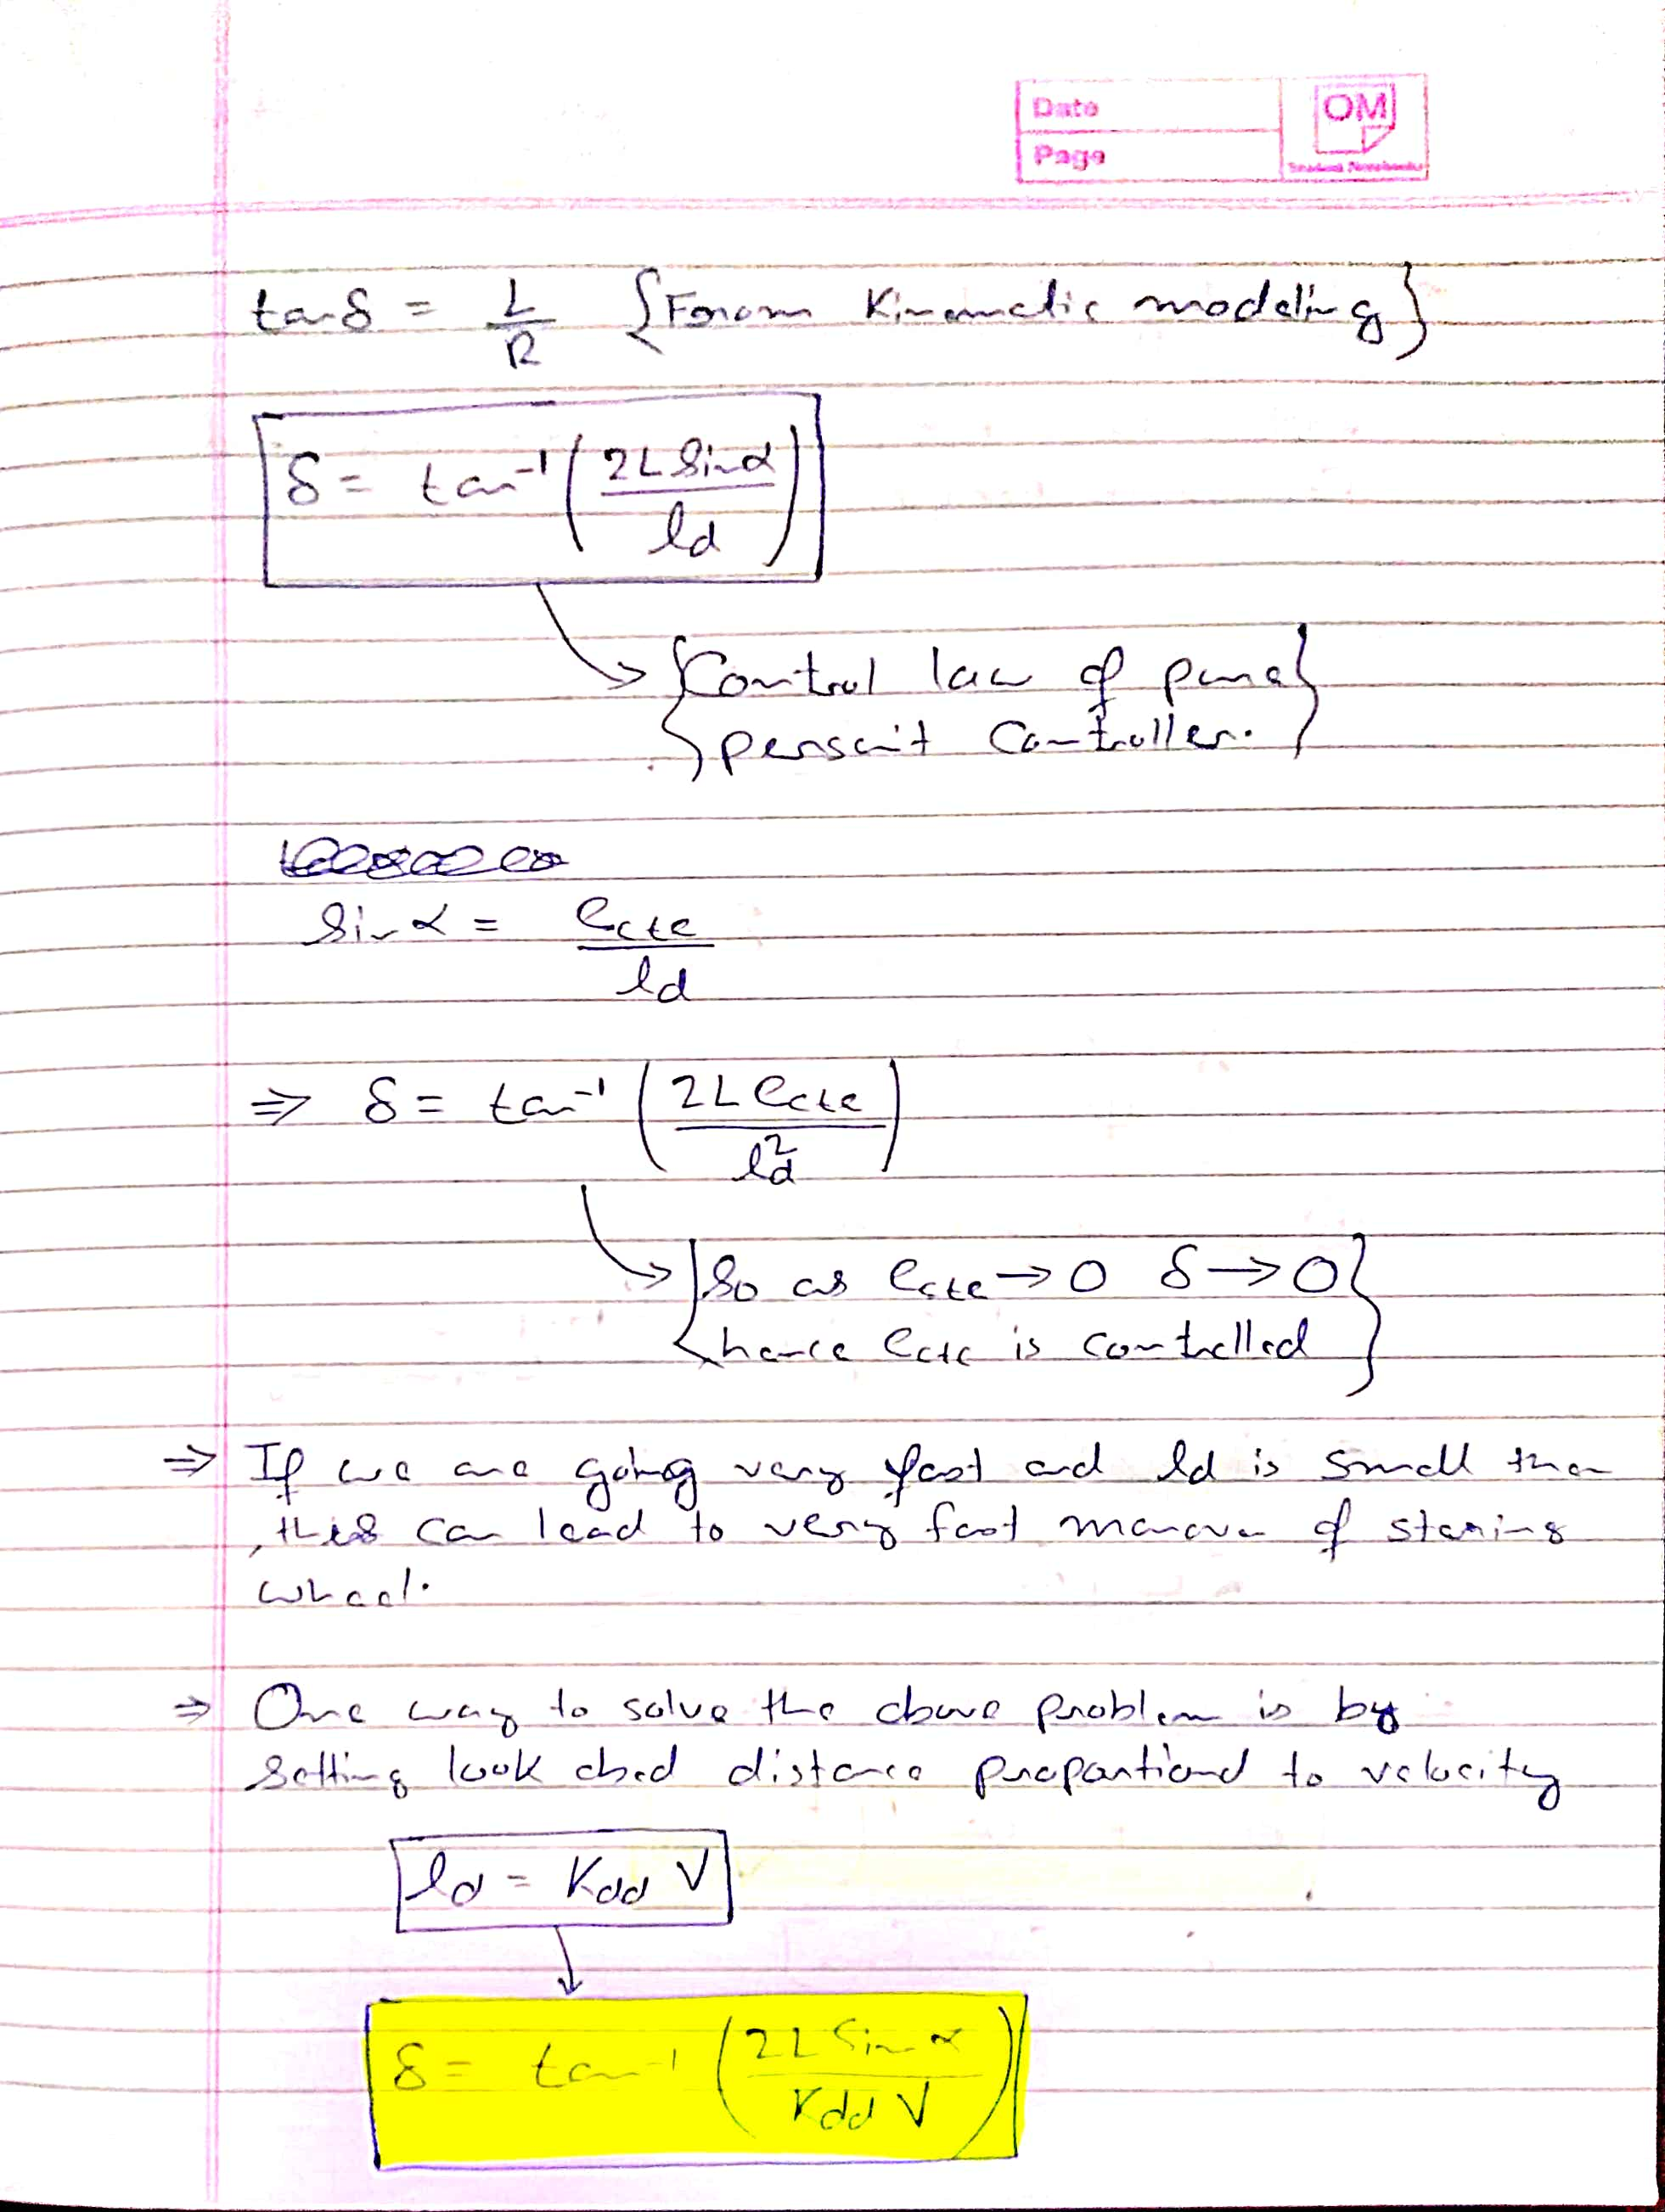 Date
OM
Page
Student Notebooks
tanδ = L/R {From Kinematic modeling}
δ = tan⁻¹(2L Sinα / ld)
{Control law of pure
persuit Controller.}
Sinα = ecte / ld
⇒ δ = tan⁻¹(2L ecte / ld²)
{So as ecte → 0 δ → 0
hence ecte is controlled}
⇒ If we are going very fast and ld is small then
, this can lead to very fast manover of stering
wheel.
⇒ One way to solve the above problem is by
Setting look ahed distance propartional to velocity
ld = Kdd V
δ = tan⁻¹(2L Sin α / Kdd V)